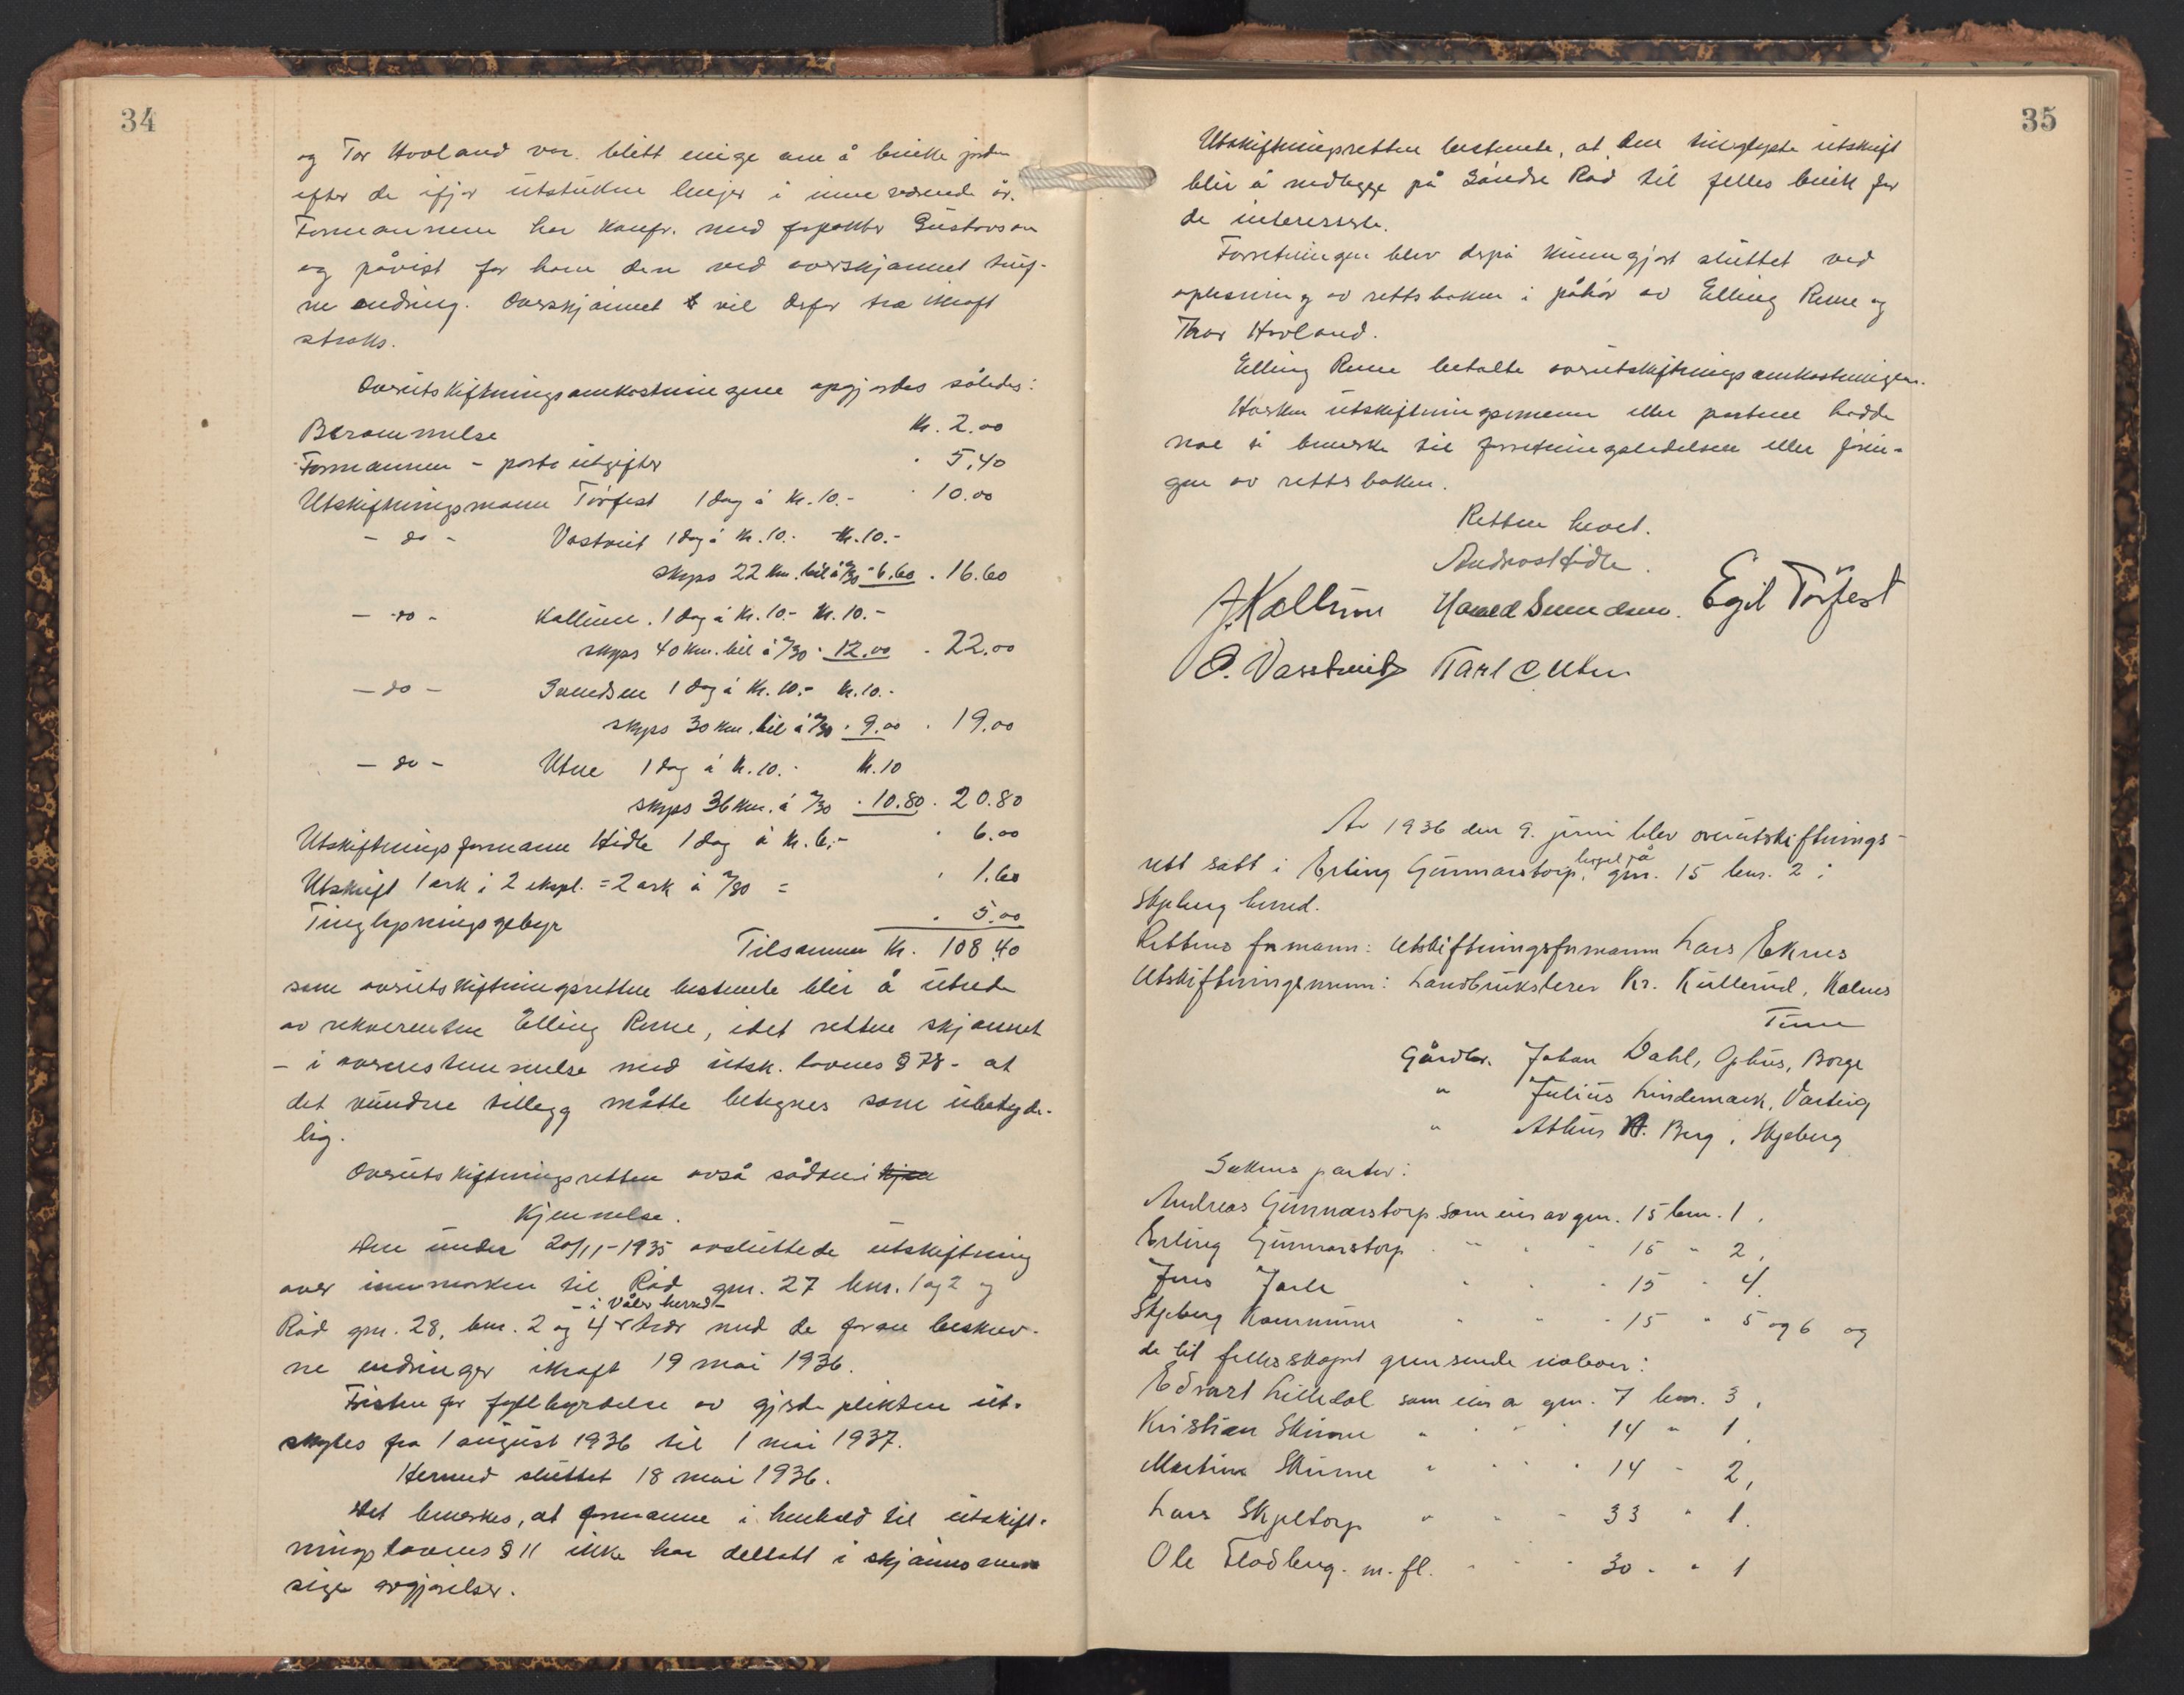 34
og Tor Hovland var blitt enige om å bruke jorden
efter de ifjor utstukne linjer i inneværende år.
Formannen har konf. med forpakter Gustavson
og påvist for ham den ved overskjønnet trufne
endring. Overskjønnet vil derfor tre ikraft
straks.
Overutskiftningsomkostningene opgjordes således:
Berammelse kr. 2.00
Formannen - porto utgifter " 5.40
Utskiftningsmann Torfest 1 dag à kr. 10.- " 10.00
- do - Vastveit 1 dag à kr. 10.- kr. 10.-
skyss 22 km. bil à o/30 " 6.60 " 16.60
- do - Kallum 1 dag à kr. 10.- kr. 10.-
skyss 40 km. bil à o/30 " 12.00 " 22.00
- do - Svendsen 1 dag à kr. 10.- kr. 10.-
skyss 30 km. bil à o/30 " 9.00 " 19.00
- do - Utne 1 dag à kr. 10.- kr. 10
skyss 36 km. à o/30 " 10.80 " 20.80
Utskiftningsformann Hidle 1 dag à kr. 6.- " 6.00
Utskrift 1 ark i 2 ekspl. = 2 ark à o/80 = " 1.60
Tinglysningsgebyr " 5.00
Tilsammen kr. 108.40
som overutskiftningsretten bestemte blir å utrede
av rekvirenten Elling Rune, idet retten skjønnet
- i overensstemmelse med utsk. lovens § 78 - at
det vundne tillegg måtte betegnes som ubetyde-
lig.
Overutskiftningsretten avsa sådan kjen
Kjennelse.
Den under 20/11-1935 avsluttede utskiftning
over innmarken til Råd gnr. 27 bnr. 1 og 2 og
- i Våler herred -
Råd gnr. 28, bnr. 2 og 4 trær med de foran beskrev-
ne endringer ikraft 19 mai 1936.
Fristen for fyllbyrdelse av gjerdeplikten ut-
skytes fra 1 august 1936 til 1 mai 1937.
Hermed sluttet 18 mai 1936.
Det bemerkes, at formannen i henhold til utskift-
ningslovens § 11 ikke har deltatt i skjønnsmes-
sige avgjørelser.
35
Utskiftningsretten bestemte, at den tinglyste utskrift
blir å nedlegge på Søndre Råd til felles bruk for
de interesserte.
Forretningen blev derpå kunngjort sluttet ved
oplesning av rettsboken i påhør av Elling Rune og
Thor Hovland.
Elling Rune betalte overutskiftningsomkostningene.
Hverken utskiftningsmenn eller partene hadde
noe å bemerke til forretningsledelsen eller førin-
gen av rettsboken.
Retten hevet.
Andreas Hidle.
J. Kallum Harald Svendsen. Egil Torfest
O. Vasstveit Karl O Utne
År 1936 den 9. juni blev overutskiftnings-
rett satt i Erling Gunnarstorp, bopel på gnr. 15 bnr. 2 i
Skjeberg herred.
Rettens formann: Utskiftningsformann Lars Eknes
Utskiftningsmenn: Landbrukslærer Kr. Kullerud, Kalnes
Tune
Gårdbr. Johan Dahl, Ophus, Borge
" Julius Lindemark, Varteig
" Athur A. Berg, Skjeberg
Sakens parter:
Andreas Gunnarstorp som eier av gnr. 15 bnr. 1,
Erling Gunnarstorp " " " 15 " 2,
Jens Jarle " " " 15 " 4,
Skjeberg Kommune " " " 15 " 5 og 6 og
de til fellesskapet grensende naboer:
Edvart Lilledal som eier av gnr. 7 bnr. 3,
Kristian Skinne " " " 14 " 1,
Martine Skinne " " " 14 " 2,
Lars Skjeltorp " " " 33 " 1.
Ole Flodberg m. fl. " " " 30 " 1